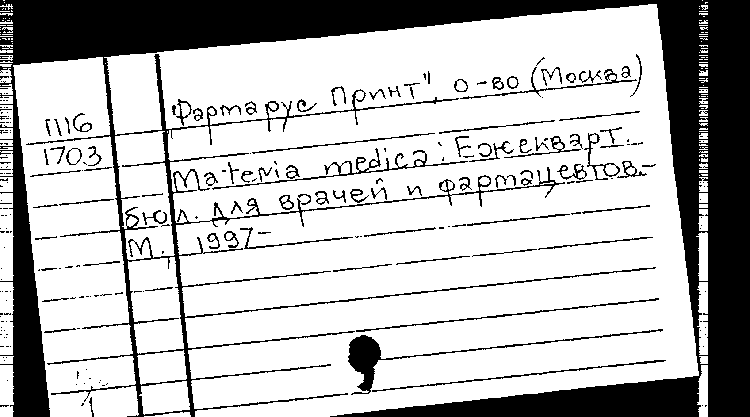 П16
1703
"Фармарус Принт", о-во (Москва)
Materia medica: Ежекварт.
бюл. для врачей и фармацевтов.-
М., 1997-